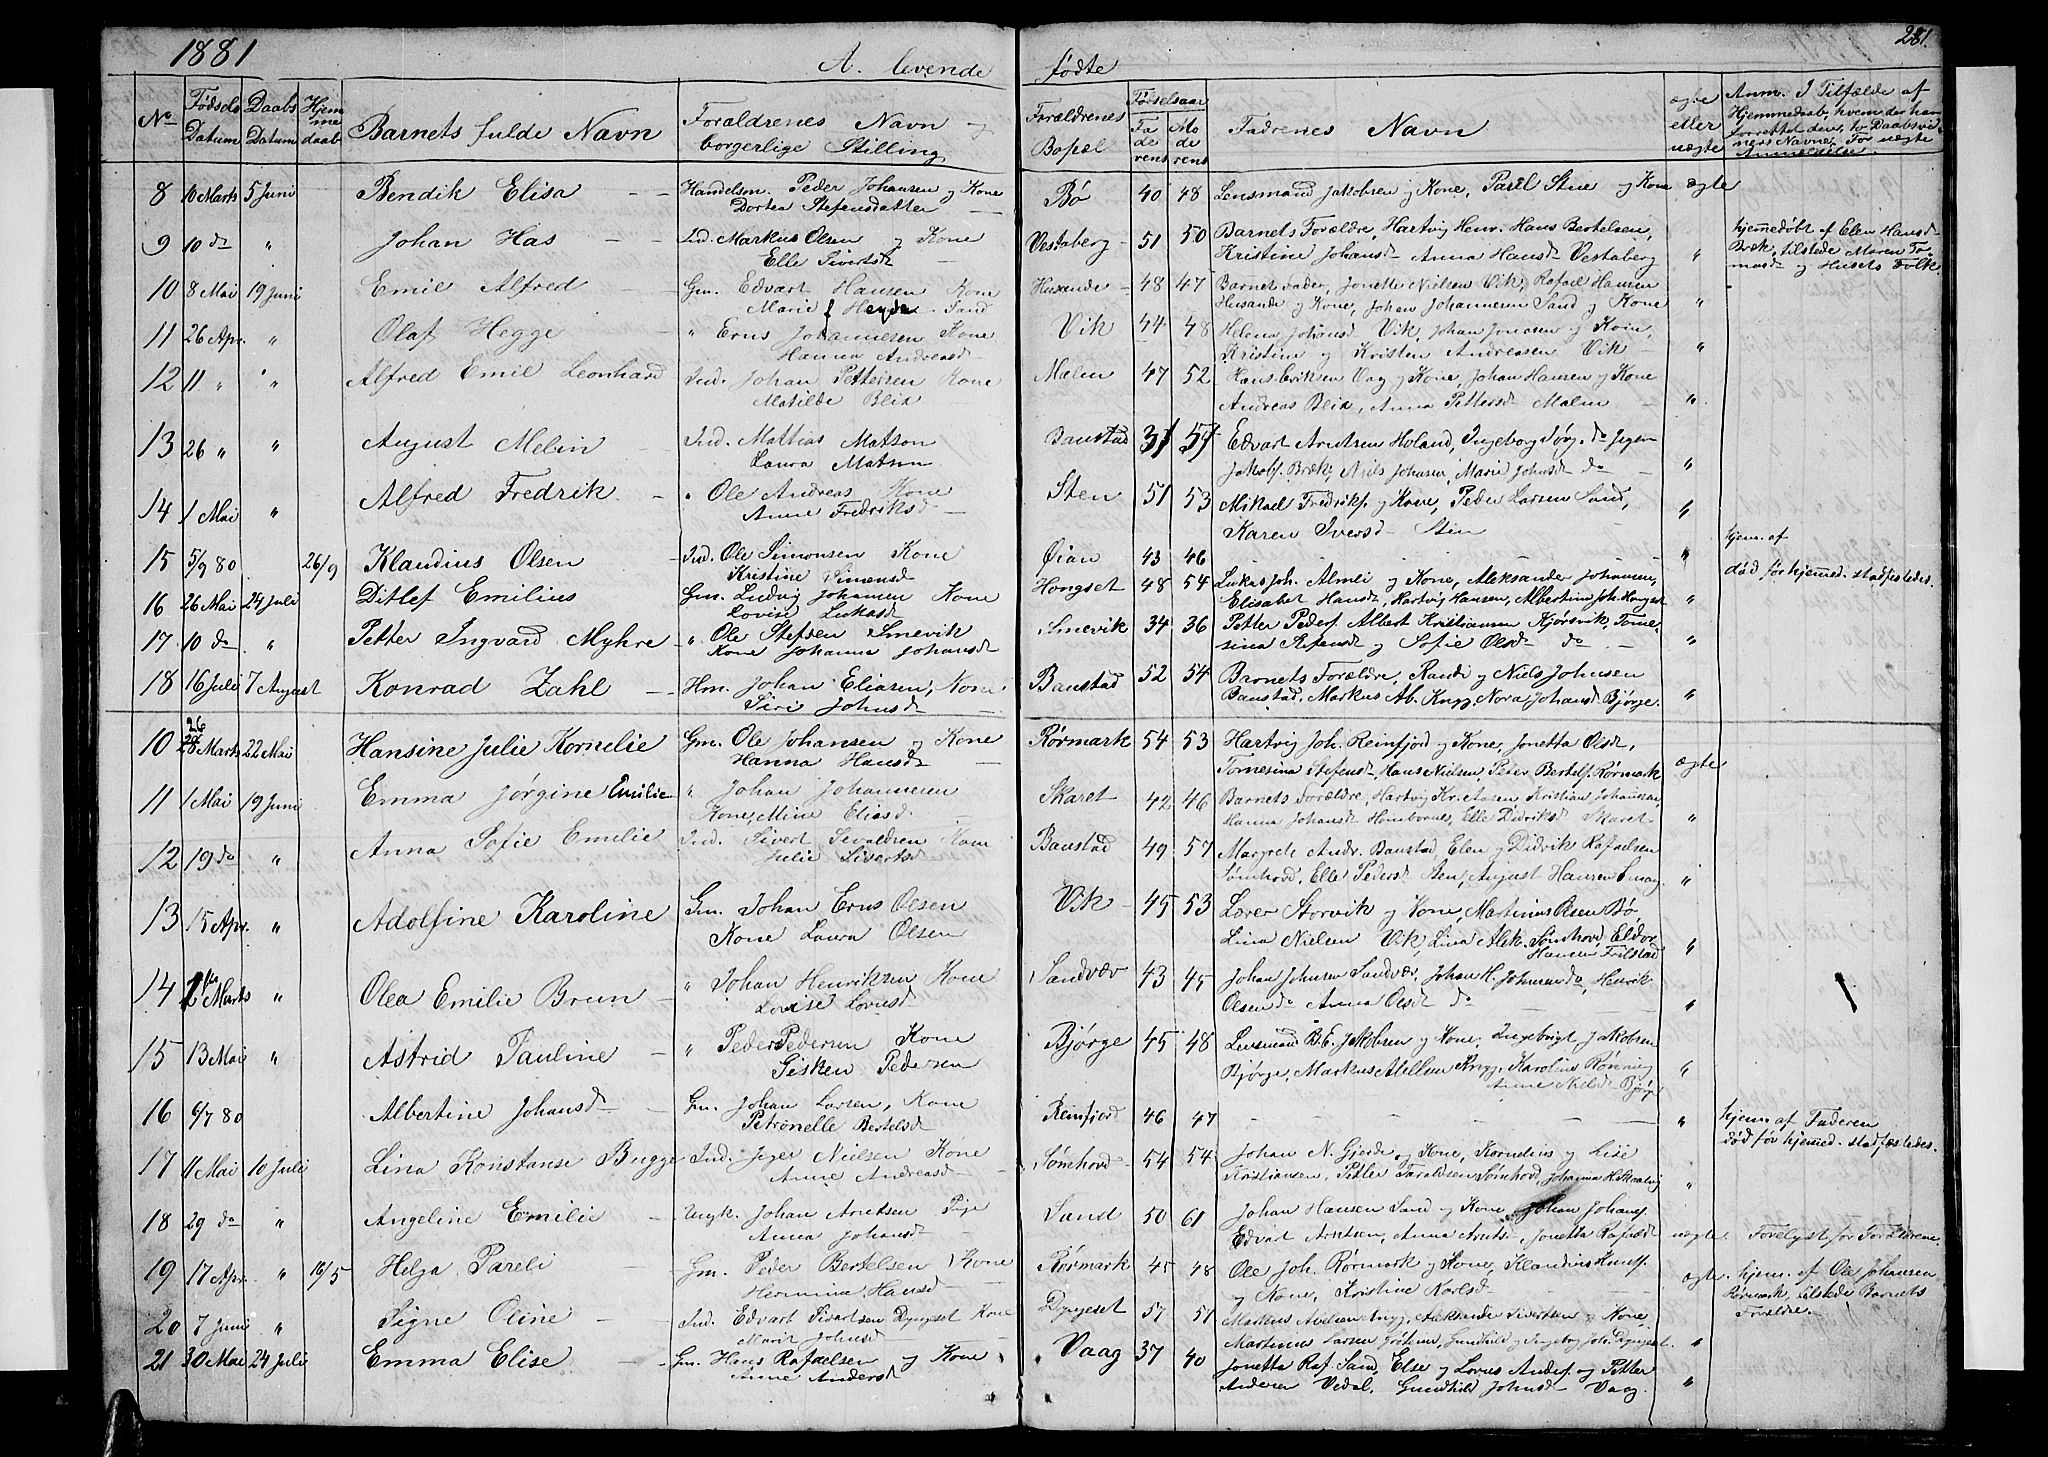 1881 A. levende fødte 281.
No Fødsels Datum Daabs Datum Hjemme daab Barnets fulde Navn Forældrenes Navn og borgerlige Stilling Forældrenes Bopæl Fødselsaar Faderens Moderens Fadrenes Navn ægte eller uægte Anm. I Tilfælde af Hjemmedaab, hvem der har forrettet den, to Daabsvidners Navne. For uægte Anmeldelse.
8 10 Marts 5 Juni Bendik Elisa Handelsm. Peder Johansen og Kone Bø 40 48 Lensmand Jakobsen og Kone, Parel Stue og Kone ægte
Dortea Stefensdatter
9 10 do " Johan Has Ind. Markus Olsen og Kone Vestaberg 51 50 Barnets Forældre, Hartvig Henr. Hans Bertelsen, hjemmedøbt af Elen Hansd
Elle Sivertsd Kristine Johansd Anna Hansd Vestaberg " Bræk, tilstede Maren To-
masd og Husets Folk
10 8 Mai 19 Juni Emil Alfred Gm. Edvart Hansen Kone Husande 48 47 Barnets Fader, Jonette Nielsen Vik, Rafael Hansen
Marie Sand Husande og Kone, Johan Johannesen Sand og Kone "
11 26 Apr. " Olaf Hegge " Erns Johannesen Kone Vik 44 48 Helena Johansd Vik, Johan Jonasen og Kone,
Hanna Andreasd Kristine og Kristen Andreasen Vik "
12 11 " " Alfred Emil Leonhard Ind. Johan Pettersen Kone Malm 47 52 Hans Eriksen Vag og Kone, Johan Hansen og Kone
Matilde Blix Andreas Blix, Anna Pettersd Malm "
13 26 " " August Melin Ind. Mattias Matson Baustad Edvart Arntsen Holand, Ingeborg Jørg. do Jeger
Laura Matson Jakobs. Bræk, Niels Johnsen, Marie Johnsd do "
14 1 Mai " Alfred Fredrik " Ole Andreas Kone Sten 51 53 Mikael Fredriks. og Kone, Peder Larsen Sand,
Anne Fredriksd Karen Iversd Sten "
15 5/9 80 26/9 Klaudius Olsen Ind. Ole Simonsen Kone Øian 43 46 " hjem. af
Kristine Simonsd død før hjemmed. stadfæstedes.
16 26 Mai 24 Juli Ditlef Emilius Gm. Ludvig Johansen Kone Hongset 48 54 Lukas Joh. Almli og Kone, Aleksander Johansen,
Lovise Lukasd Elisabet Hansd, Hartvig Hansen, Albertine Joh. Hongset "
17 10 do " Petter Ingvard Myhre " Ole Stefsen Smevik Smevik 34 36 Petter Peders. Albert Kristiansen Kjørsvik, Tome-
Kone Johanna Johansd sina Stefensd og Sofie Olsd do "
18 16 Juli 7 August Konrad Zahl Hm. Johan Eliasen, Kone Baustad 52 54 Barnets Forældre, Randi og Niels Johnsen
Siri Johnsd Baustad, Markus Ab. Knyg, Nora Johansd Bjørge. "
10 26 Marts 22 Mai Hansine Julie Kornelie Gm. Ole Johansen og Kone Rørmark 54 53 Hartvig Joh. Reinfjord og Kone, Jonetta Olsd,
Hanna Hansd Tomesina Stefensd, Hans Nielsen, Peter Bertels. Rørmark ægte
11 1 Mai 19 Juni Emma Jørgine Emilie " Johan Johannesen Skaret 42 46 Barnets Forældre, Hartvig Kr. Aasen, Kristian Johansen
Kone, Mine Eliasd Hanna Johansd Hombornes, Elle Didriksd Skaret "
12 19 do " Anna Sofie Emelie Ind. Sivert Sivaldsen Kone Baustad 49 57 Margrete Andr. Baustad, Elen og Didrik Rafaelsen
Julie Sivertsd Sømhovd, Elle Pedersd Sten, August Hansen Smag. "
13 15 Apr. " Adolfine Karoline Gm. Johan Erns Olsen Vik 45 53 Lærer Storvik og Kone, Martinus Olsen Bø,
Kone Laura Olsen Lina Nielsen Vik, Lina Alek. Sømhovd, Eldor "
Hansen Frilstad
14 Marts " Olea Emilie Brun " Johan Henriksen Kone Sandvær 43 45 Johan Johnsen Sandvær, Johan H. Johnsen do, Henrik
Lovise Lornsd Olsen do Anna Olsd do "
15 13 Mai " Astrid Pauline " Peder Pedersen Kone Bjørge 45 48 Lensmand B. E. Jakobsen og Kone, Ingebrigt Jakobsen
Gisken Pedersen Bjørge, Markus Abelsen Knyg, Karolius Rønning "
Anne Nielsd Bjørge
16 6/7 80 Albertine Johansd Gm. Johan Larsen, Kone Reinfjord 46 47 " hjem. af Faderen
Petronelle Bertelsd død før hjemmed. stadfæstedes.
17 11 Mai 10 Juli Lina Konstanse Bugge Ind. Jeger Nielsen Kone Sømhovd 54 54 Johan N. Gjerde og Kone, Kornelius og Lise
Anne Andreasd Kristiansen, Petter Taraldsen Sømhovd, Johanna H. Skaalvig "
18 29 do " Angeline Emilie Ungk. Johan Arntsen Pige Sand 50 61 Johan Hansen Sand og Kone, Johan Johans.
Anna Johansd Edvart Arntsen, Anna Arnts., Jonetta Rafaelsd uægte. Forelyst for Forældrene.
19 17 Apr. " 16/5 Helga Pareli Gm. Peder Bertelsen Kone Rørmark 45 48 Ole Joh. Rørmark og Kone, Klaudius Hans. ægte hjem. af Ole Johansen
Hermina Hansd og Kone, Kristine Karlsd Rørmark, tilstede Barnets
Forældre.
20 7 Juni " Signe Oline Ind. Edvart Sivertsen Dypeset Kone Dypeset 57 51 Markus Abelsen Knyg, Aleksander Sivertsen og Kone,
Marit Johnsd Martinus Larsen Gunhild og Ingeborg Joh. Dypeset. "
21 30 Mai 24 Juli Emma Elise Gm. Hans Rafaelsen og Kone Vaag 37 40 Jonetta Raf. Sand, Else og Lorns Anders. og Petter
Anne Andersd Andersen Vedal, Gundhild Johnsd Vaag. "